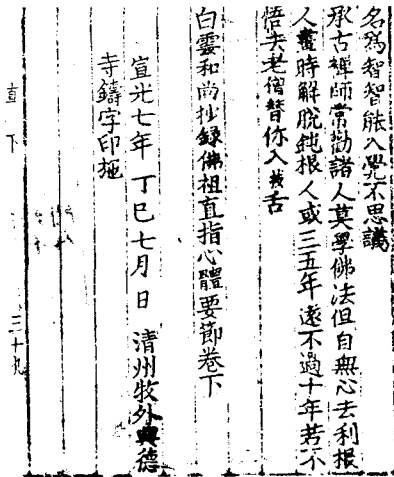 名爲智智能入覺不思議
承古禪師常勸諸人莫學佛法但自無心去利根
人晝時解脫鈍根人或三五年遠不過十年若不
悟去老僧替你入拔舌
白雲和尚抄錄佛祖直指心體要節卷下
宣光七年丁巳七月 日 清州牧外興德
寺鑄字印施
直下
三十九